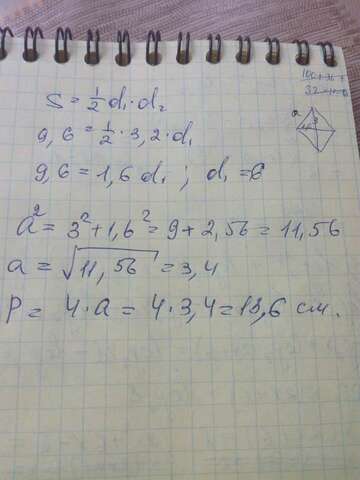 S = 1/2 d₁ · d₂
9,6 = 1/2 · 3,2 · d₁
9,6 = 1,6 d₁ ; d₁ = 6
a² = 3² + 1,6² = 9 + 2,56 = 11,56
a = √11,56 = 3,4
P = 4 · a = 4 · 3,4 = 13,6 см.
a
3